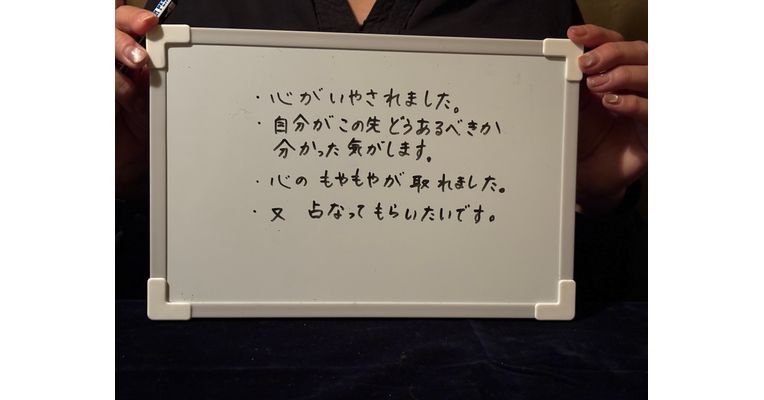 ・心がいやされました。
・自分がこの先どうあるべきか
分かった気がします。
・心のもやもやが取れました。
・又 占なってもらいたいです。